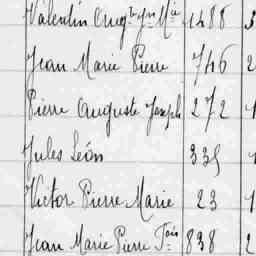 Valentin Aug^te J^n M^ie 1488 3
Jean Marie Pierre 746 2
Pierre Auguste Joseph 272 1
Jules Léon 335 1
Victor Pierre Marie 23 1
Jean Marie Pierre F^ois 838 2